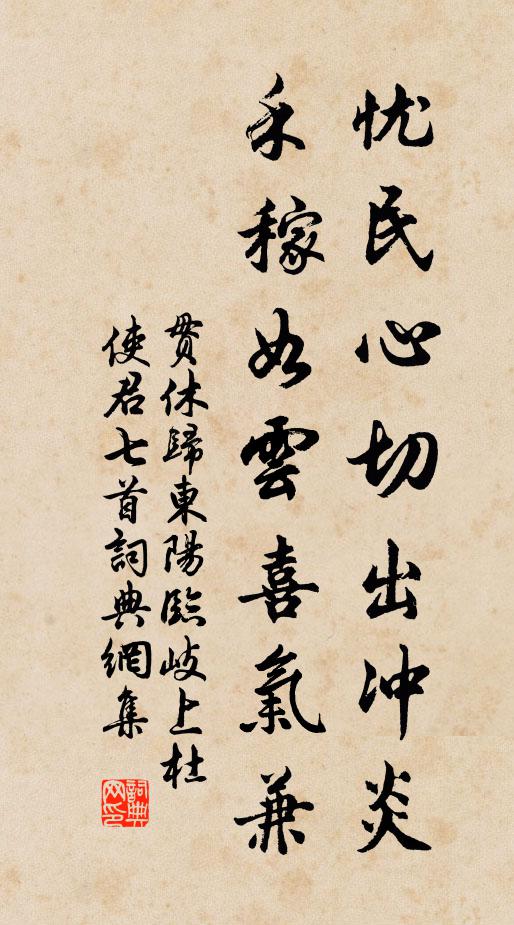 忧民心切出冲炎
禾稼如雲喜氣兼
贯休歸東陽臨岐上杜
使君七首詞典網集
詞典网印